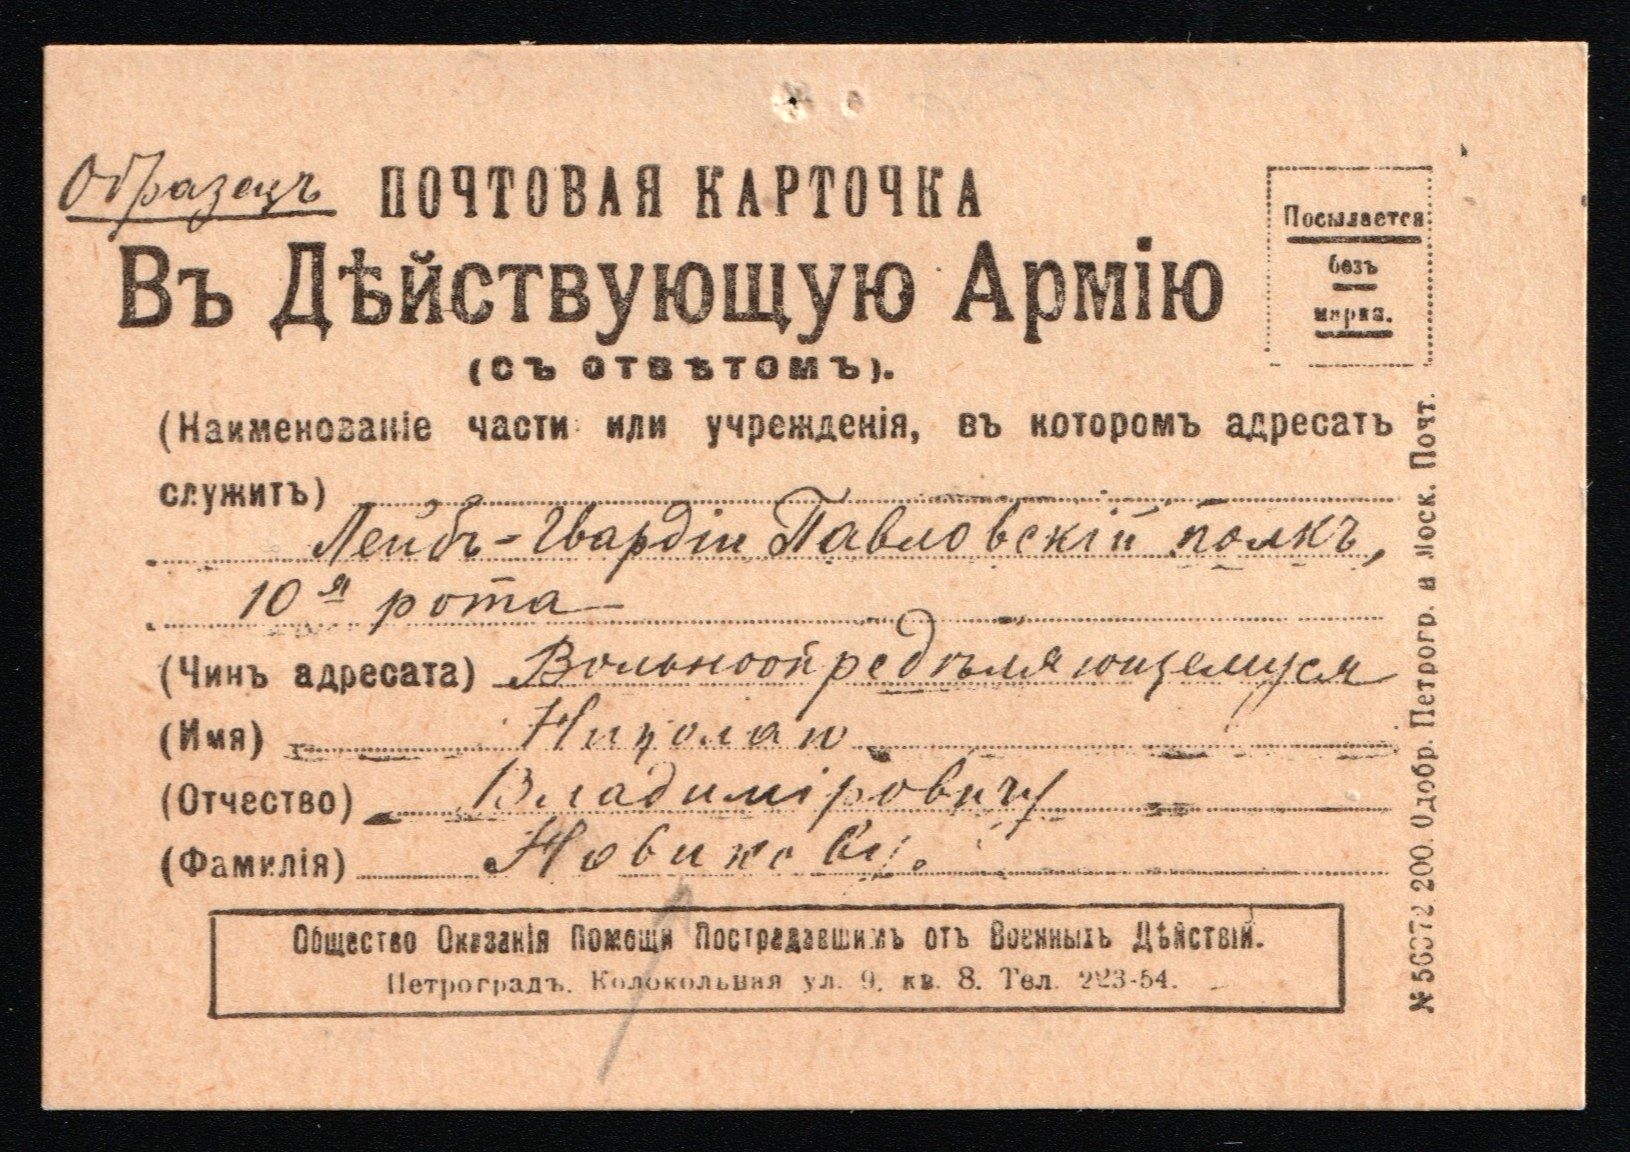 Образецъ
ПОЧТОВАЯ КАРТОЧКА
Въ Дѣйствующую Армію
(съ отвѣтомъ).
Посылается
безъ
марка.
(Наименованіе части или учрежденія, въ которомъ адресатъ
служитъ)
Лейбъ-Гвардіи Павловскій полкъ,
10я рота
(Чинъ адресата) Вольноопредѣляющемуся
(Имя) Николаю
(Отчество) Владиміровичу
(Фамилія) Новикову.
Общество Оказанія Помощи Пострадавшимъ отъ Военныхъ Дѣйствій.
Петроградъ. Колокольная ул. 9, кв. 8. Тел. 223-54.
200. Одобр. Петрогр. и Моск. Почт.